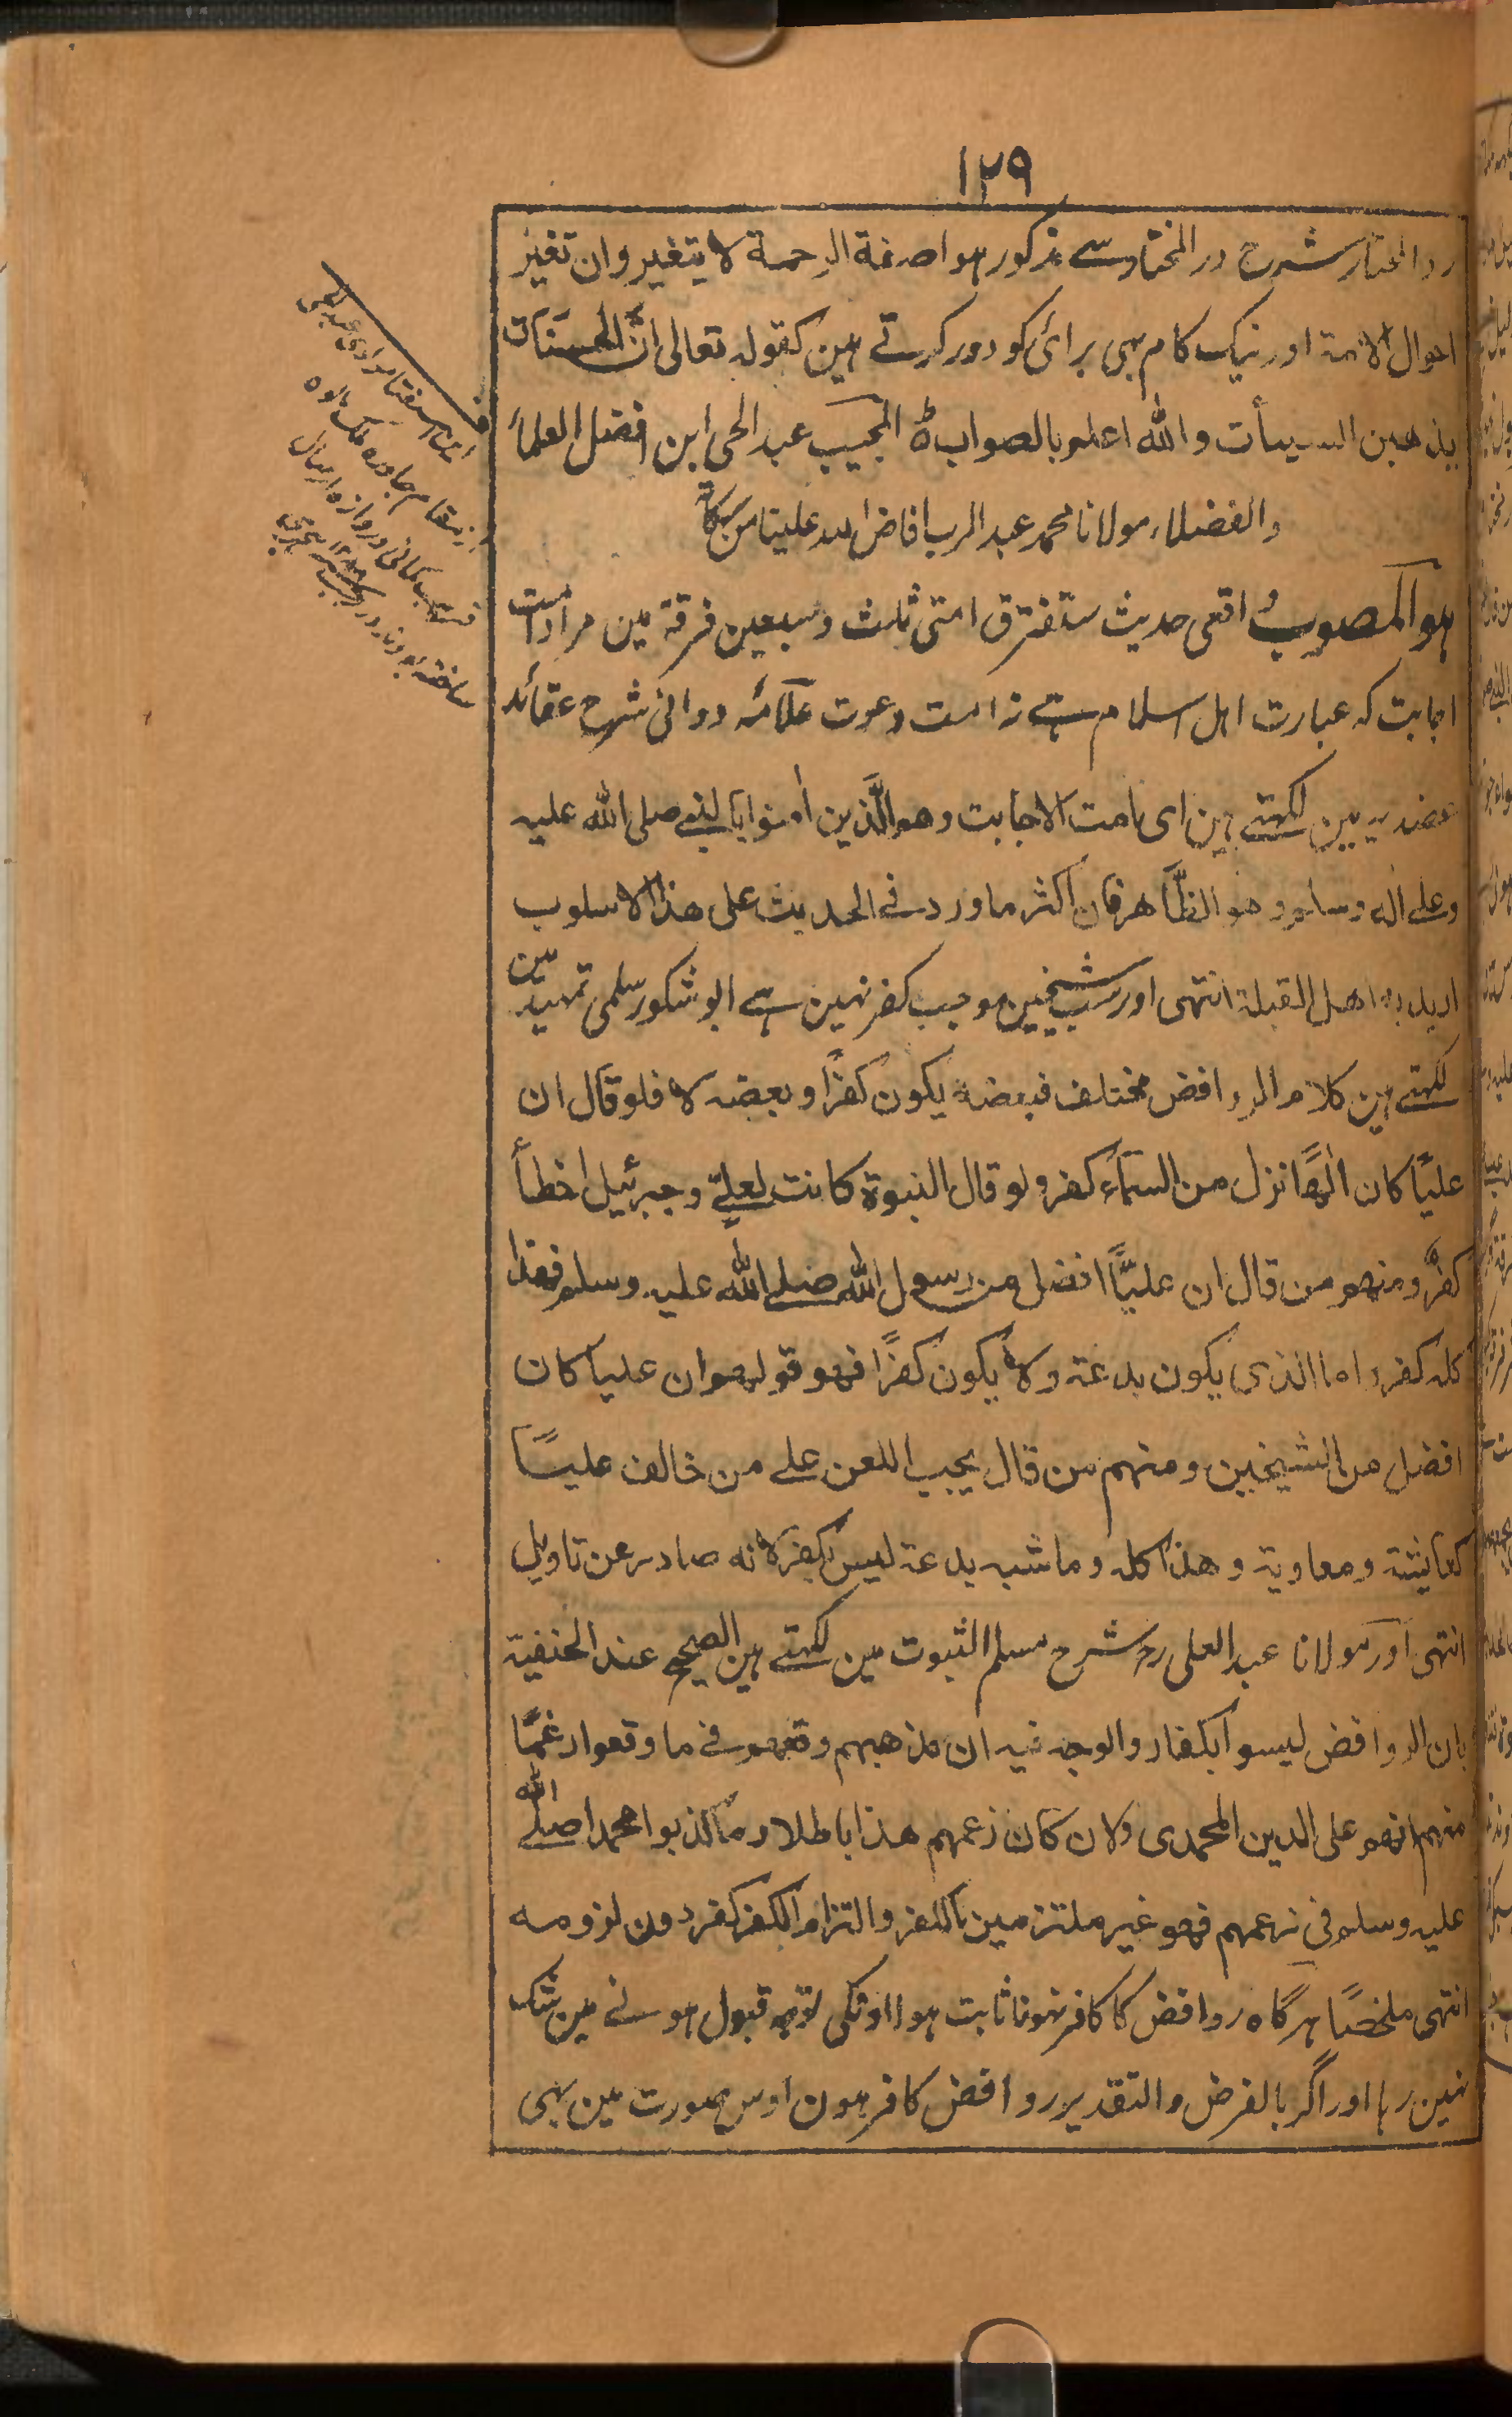 ١٢٩
رد المختار شرح در المختار سے مذکور ہوا صفة الرحمة لا یتغیر وان تغیر
احوال الائمة اور نیک کام بہی برائی کو دور کرتے ہین کقوله تعالی انَّ الحسنات
یذهبن السیئات والله اعلم بالصواب ٥ المجیب عبد الحی ابن افضل العلماء
والفضلاء مولانا محمد عبد الرب افاض الله علینا من برکاته
ہو المصوبُ اقعی حدیث ستفترق امتی ثلث وسبعین فرقة مین مراد امت
اجابت کہ عبارت اہل اسلام سے ہے نہ امت دعوت علّامہ دوانی شرح عقائد
عضدیہ مین لکہتے ہین ای امت الاجابت وهو الَّذین اٰمنوا بالنبے صلی الله علیه
وعلے اٰله وسلم وهو الظَّاهر فان اکثر ما ورد فے الحدیث علی هذا الاسلوب
ارید به اهل القبلة انتہی اور سب شیخین موجب کفر نہین ہے ابو شکور سلمی تمہید مین
لکہتے ہین کلام الروافض مختلف فبعضه یکون کفرًا وبعضه لا فلو قال ان
علیًا کان الٰهًا نزل من السماء کفر ولو قال النبوة کانت لعلیّے وجبرئیل اخطأ
کفرٌ ومنهم من قال ان علیًّا افضل من رسول الله صلے الله علیه وسلم فهذا
کله کفر واما الذی یکون بدعة ولا یکون کفرًا فهو قولهم ان علیا کان
افضل من الشیخین ومنہم من قال یجب اللعن علے من خالف علیًا
کعایشة ومعاویة وهذا کله وما شبه بدعة لیس بکفر لانه صادر عن تاویل
انتہی اور مولانا عبد العلی رح شرح مسلم الثبوت مین لکہتے ہین الصحیح عند الحنفیة
بان الروافض لیسوا بکفار والوجه فیه ان مذهبهم وقعهم فے ما وقعوا رغمًا
منہم انهم علی الدین المحمدی ولان کان زعمهم هذا باطلا وما کذبوا محمدا صلے الله
علیه وسلم فی زعمهم فهم غیر ملتزمین بالکفر والتزام الکفر کفر دون لزومه
انتہی ملخصًا ہرگاہ روافض کا کافر نہونا ثابت ہوا اونکی توبہ قبول ہونے مین شک
نہین رہا اور اگر بالفرض والتقدیر روافض کافر ہون اوس صورت مین بہی
این استفتا مولوی عبد الحی
بمقام جاورہ ملک مالوہ
دروازہ ارسال
ساختہ بودند در